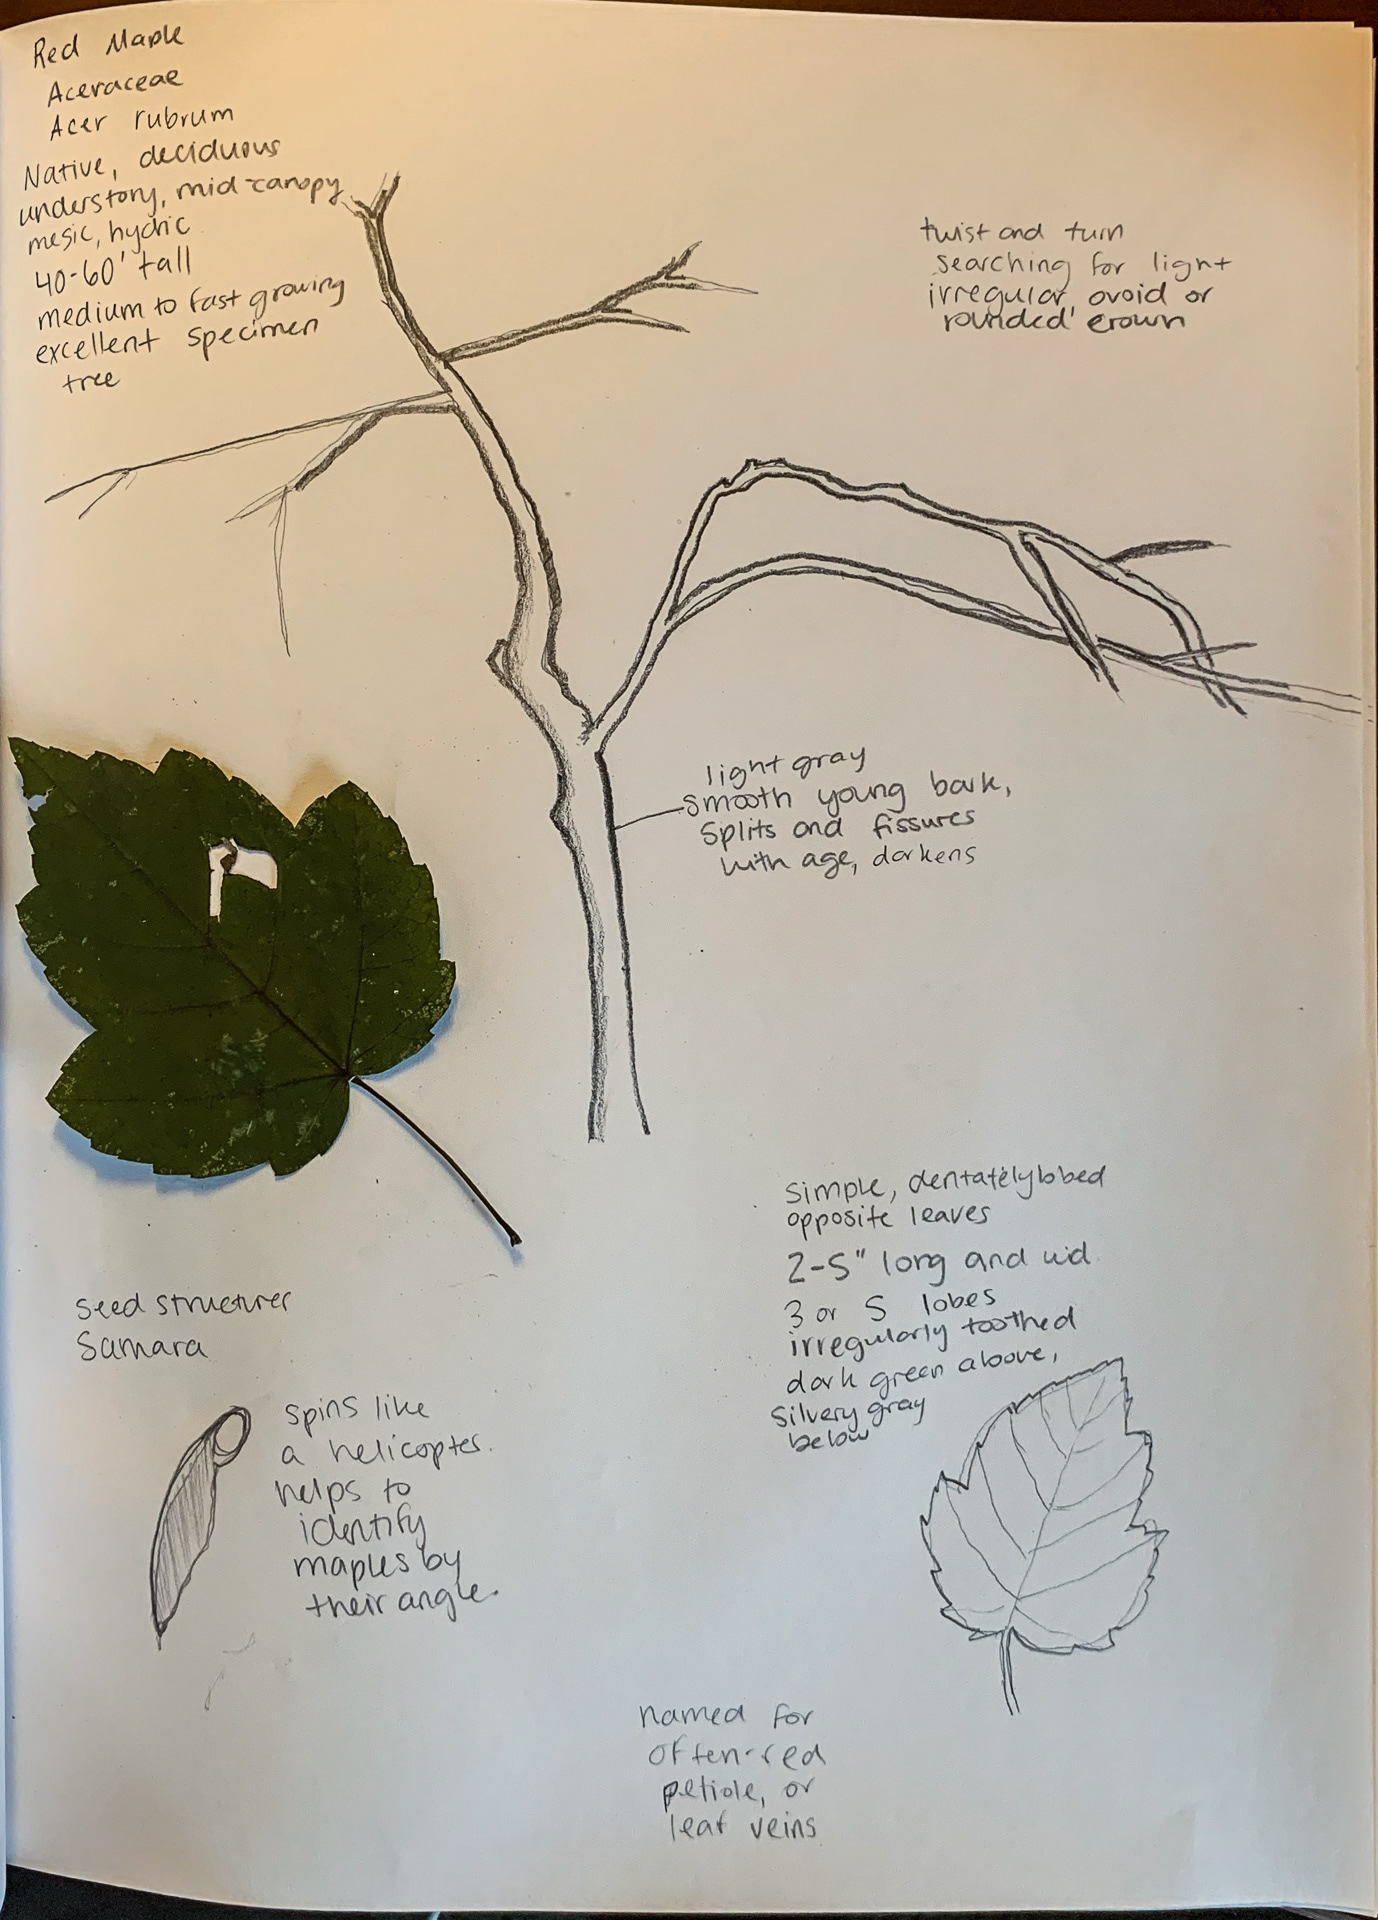 Red Maple
Aceraceae
Acer rubrum
Native, deciduous
understory, mid-canopy
mesic, hydric
40-60' tall
medium to fast growing
excellent specimen
tree
twist and turn
searching for light
irregular, ovoid or
rounded crown
light gray
smooth young bark,
splits and fissures
with age, darkens
simple, dentately lobed
opposite leaves
2-5" long and wid
3 or 5 lobes
irregularly toothed
dark green above,
silvery gray
below
seed structurer
Samara
spins like
a helicopter.
helps to
identify
maples by
their angle.
named for
often-red
petiole, or
leaf veins